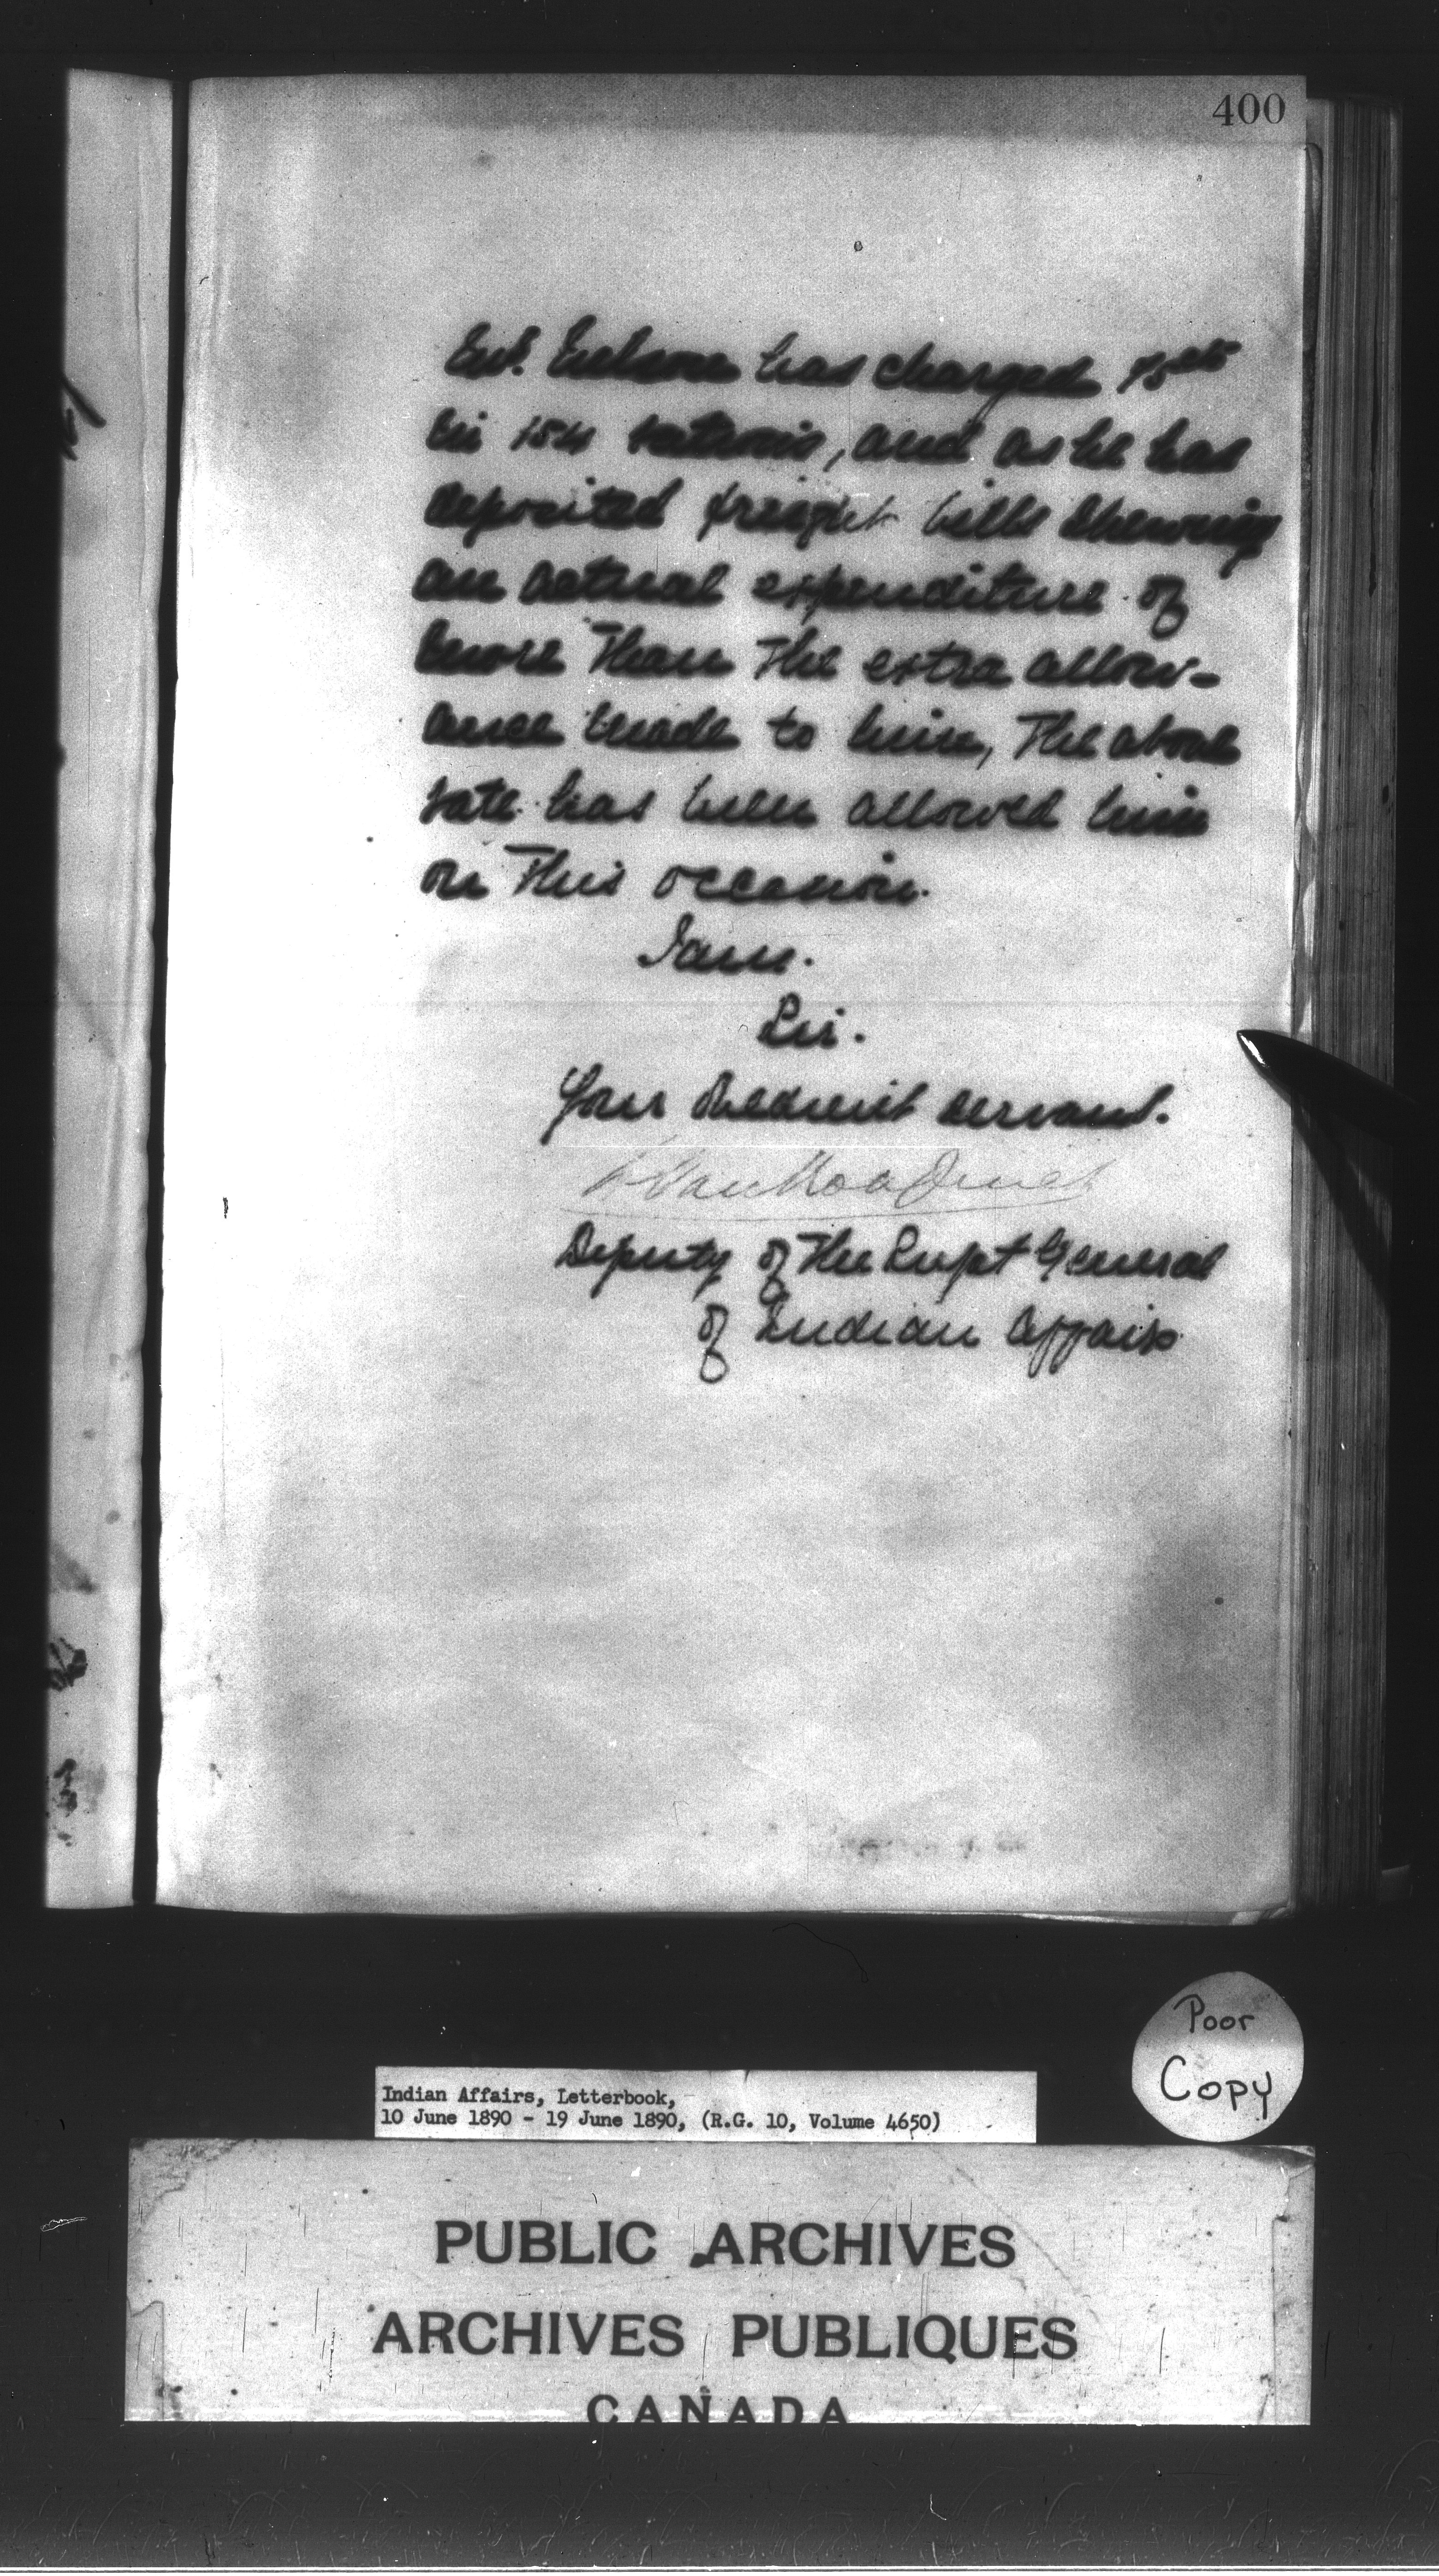 400
has charged 75cts
in 154 rations, and as he has
deposited freight bills shewing
an actual expenditure of
more than the extra allow-
ance made to him, the above
rate has been allowed him
on this occasion.
I am.
Sir.
Your obedient servant.
L Vankoughnet
Deputy of the Supt General
of Indian Affairs
Poor
Copy
Indian Affairs, Letterbook,
10 June 1890 - 19 June 1890, (R.G. 10, Volume 4650)
PUBLIC ARCHIVES
ARCHIVES PUBLIQUES
CANADA